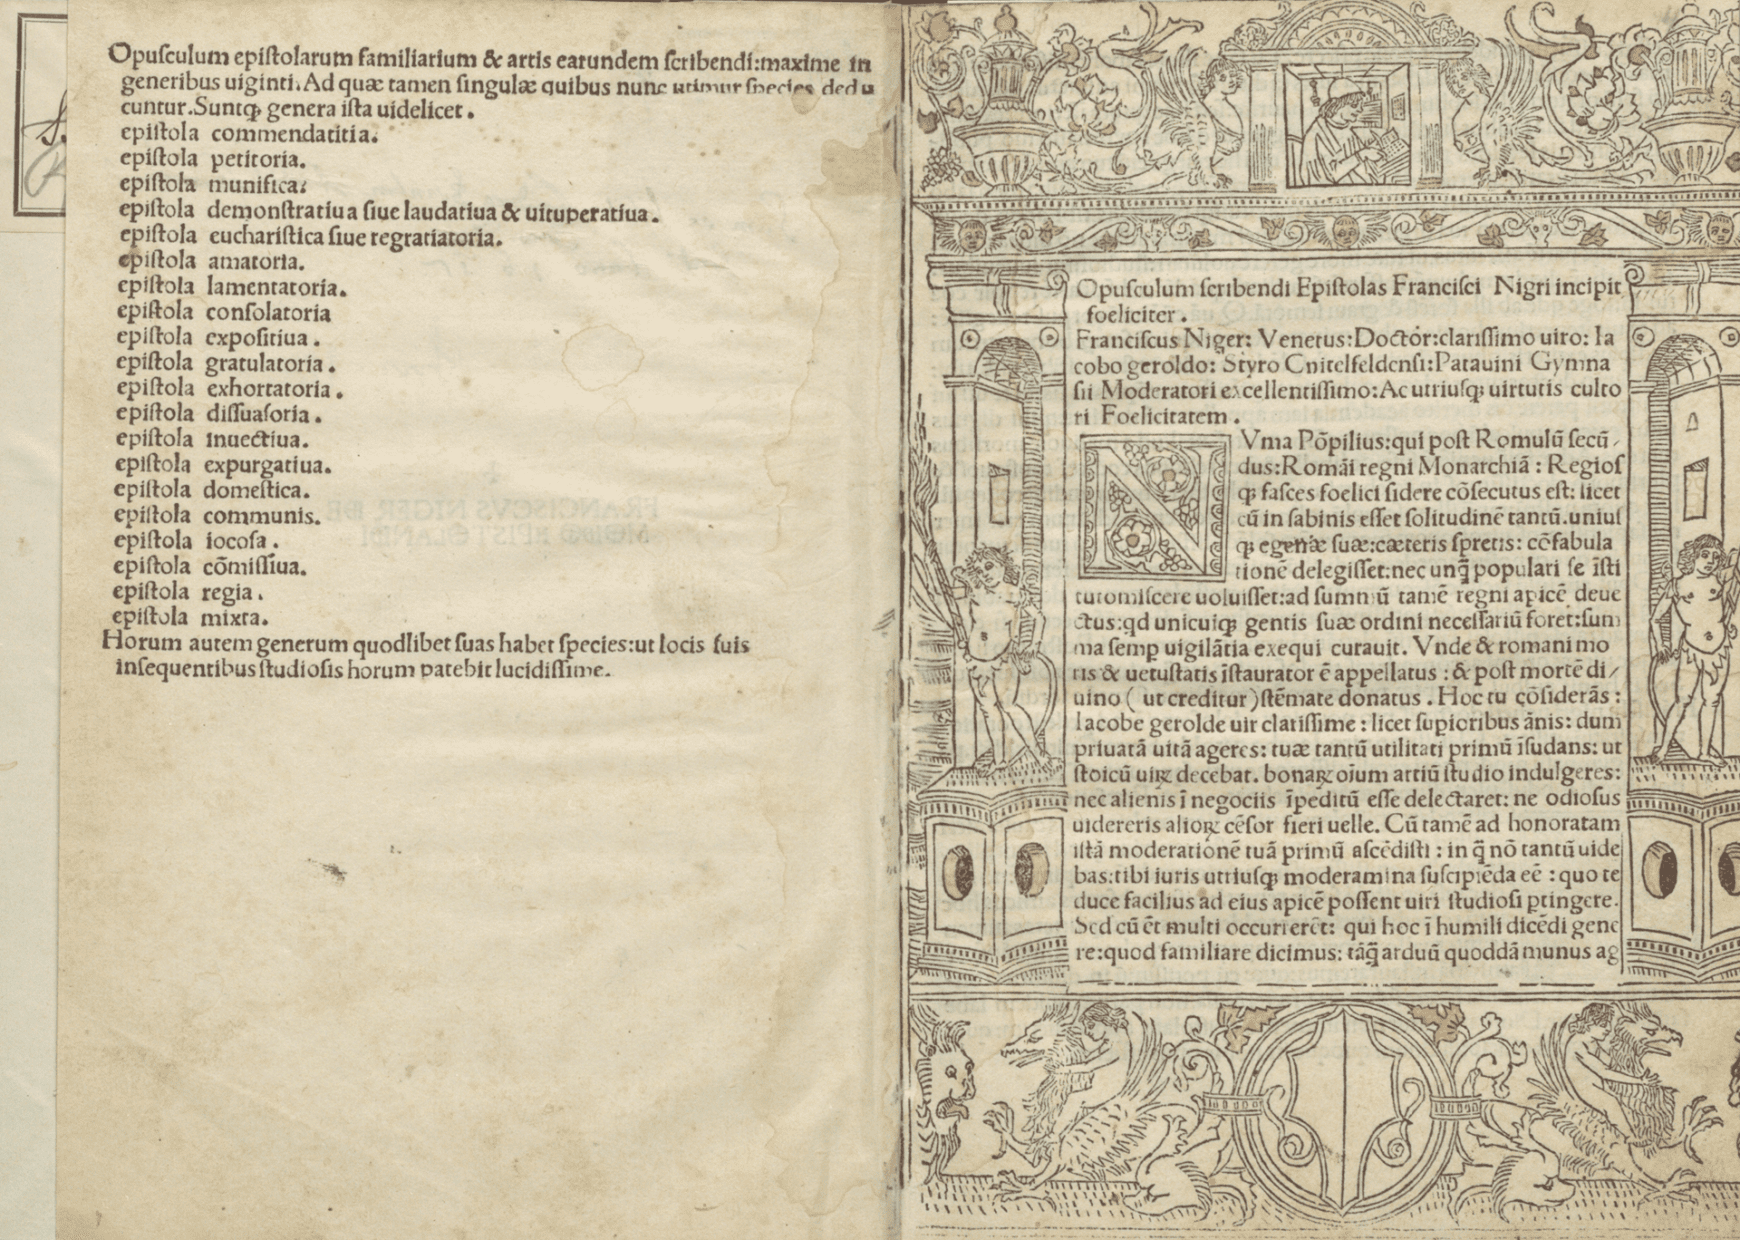 Opuſculum epiſtolarum familiarium & artis earundem ſcribendi:maxime in
generibus uiginti. Ad quæ tamen ſingulæ quibus nunc utimur ſpecies dedu
cuntur. Suntq; genera iſta uidelicet.
epiſtola commendatitia.
epiſtola petitoria.
epiſtola munifica:
epiſtola demonſtratiua ſiue laudatiua & uituperatiua.
epiſtola euchariſtica ſiue regratiatoria.
epiſtola amatoria.
epiſtola lamentatoria.
epiſtola conſolatoria
epiſtola expoſitiua.
epiſtola gratulatoria.
epiſtola exhortatoria.
epiſtola diſſuaſoria.
epiſtola inuectiua.
epiſtola expurgatiua.
epiſtola domeſtica.
epiſtola communis.
epiſtola iocoſa.
epiſtola cōmiſſiua.
epiſtola regia.
epiſtola mixta.
Horum autem generum quodlibet ſuas habet ſpecies:ut locis ſuis
inſequentibus ſtudioſis horum patebit lucidiſſime.
Opuſculum ſcribendi Epiſtolas Franciſci Nigri incipit
foeliciter.
Franciſcus Niger: Venetus:Doctor:clariſſimo uiro: Ia
cobo geroldo: Styro Cnitelfeldenſi:Patauini Gymna
ſii Moderatori excellentiſſimo:Ac utriuſq; uirtutis culto
ri Foelicitatem.
NVma Pōpilius:qui poſt Romulū ſecū-
dus:Romāi regni Monarchiā: Regioſ
q; faſces foelici ſidere cōſecutus eſt: licet
cū in ſabinis eſſet ſolitudinē tantū.uniuſ
q; egeriæ ſuæ:cæteris ſpretis: cōfabula
tionē delegiſſet:nec unq̄ populari ſe īſti
tutomiſcere uoluiſſet:ad ſummū tamē regni apicē deue
ctus:qd unicuiq; gentis ſuæ ordini neceſſariū foret:ſum
ma ſemp uigilātia exequi curauit. Vnde & romani mo
ris & uetuſtatis īſtaurator ē appellatus : & poſt mortē di/
uino ( ut creditur )ſtēmate donatus. Hoc tu cōſiderās :
Iacobe gerolde uir clariſſime : licet ſupioribus ānis: dum
priuatā uitā ageres: tuæ tantū utilitati primū īſudans: ut
ſtoicū uiꝝ decebat. bonaꝝ oīum artiū ſtudio indulgeres:
nec alienis ī negociis īpeditū eſſe delectaret: ne odioſus
uidereris alioꝝ cēſor fieri uelle. Cū tamē ad honoratam
iſtā moderationē tuā primū aſcēdiſti : in q̄ nō tantū uide
bas:tibi iuris utriuſq; moderamina ſuſcipiēda eē : quo te
duce facilius ad eius apicē poſſent uiri ſtudioſi ptingere.
Sed cū ēt multi occurrerēt: qui hoc ī humili dicēdi gene
re:quod familiare dicimus: tāq̄ arduū quoddā munus ag